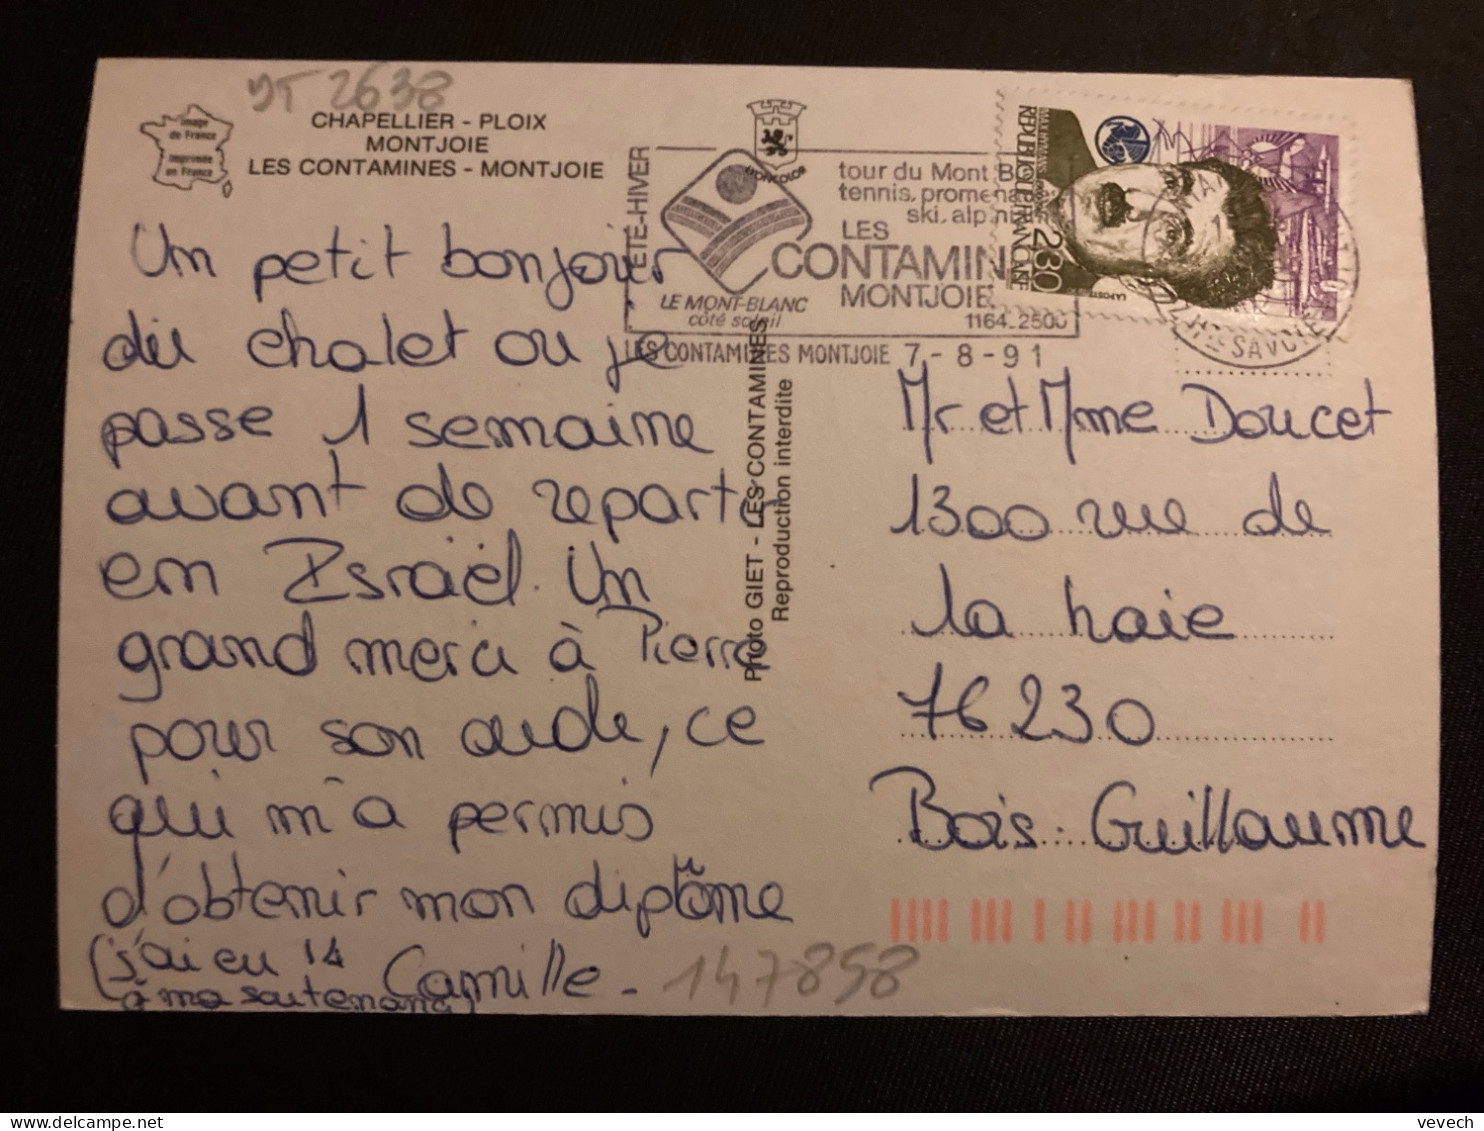 YT 2638
Image
de France
Imprimée
en France
CHAPELLIER - PLOIX
MONTJOIE
LES CONTAMINES - MONTJOIE
Un petit bonjour
du chalet ou je
passe 1 semaine
avant de repartir
en Israël. Un
grand merci à Pierre
pour son aide, ce
qui m'a permis
d'obtenir mon diplôme
(j'ai eu 14
à ma soutenance)
Camille -
147858
Photo GIET - LES CONTAMINES
Reproduction interdite
LYONCOLOR
ÉTÉ-HIVER
LE MONT-BLANC
côté soleil
tour du Mont B
tennis, promena
ski, alpin
LES
CONTAMIN
MONTJOIE
1164_2500
LES CONTAMINES MONTJOIE 7-8-91
RÉPUBLIQUE FRANÇAISE
2,30
LA POSTE
HTE SAVOIE
Mr et Mme Doucet
1300 rue de
la haie
76230
Bois-Guillaume
vevech